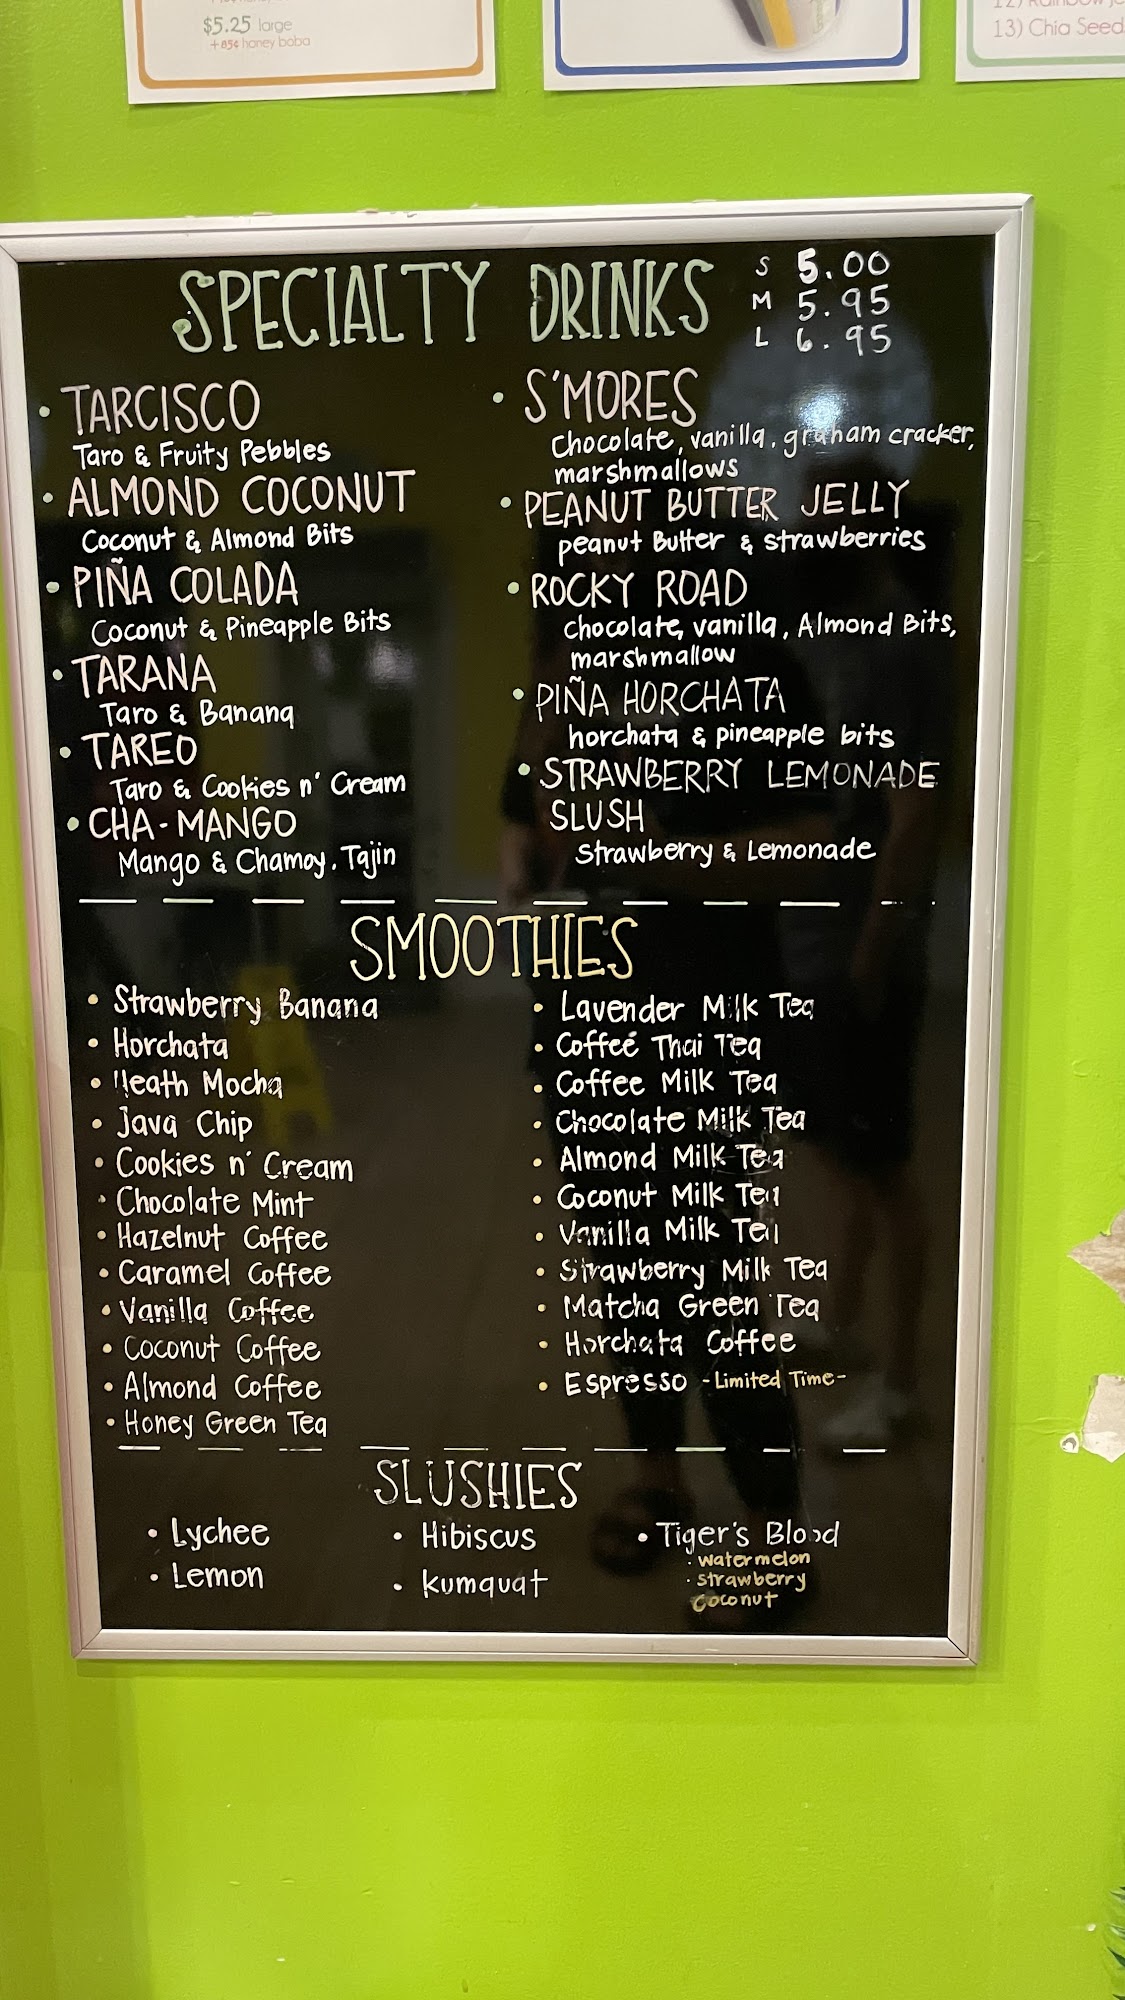 $5.25 large
+85¢ honey boba
13) Chia Seed
SPECIALTY DRINKS
S 5.00
M 5.95
L 6.95
• TARCISCO
Taro & Fruity Pebbles
• ALMOND COCONUT
Coconut & Almond Bits
• PIÑA COLADA
Coconut & Pineapple Bits
• TARANA
Taro & Banana
• TAREO
Taro & Cookies n' Cream
• CHA-MANGO
Mango & Chamoy, Tajin
• S'MORES
Chocolate, vanilla, graham cracker,
marshmallows
• PEANUT BUTTER JELLY
peanut Butter & strawberries
• ROCKY ROAD
chocolate, vanilla, Almond Bits,
marshmallow
• PIÑA HORCHATA
horchata & pineapple bits
• STRAWBERRY LEMONADE
SLUSH
Strawberry & Lemonade
SMOOTHIES
• Strawberry Banana
• Horchata
• Heath Mocha
• Java Chip
• Cookies n' Cream
• Chocolate Mint
• Hazelnut Coffee
• Caramel Coffee
• Vanilla Coffee
• Coconut Coffee
• Almond Coffee
• Honey Green Tea
• Lavender Milk Tea
• Coffee Thai Tea
• Coffee Milk Tea
• Chocolate Milk Tea
• Almond Milk Tea
• Coconut Milk Tea
• Vanilla Milk Tea
• Strawberry Milk Tea
• Matcha Green Tea
• Horchata Coffee
• Espresso -Limited Time-
SLUSHIES
• Lychee
• Lemon
• Hibiscus
• Kumquat
• Tiger's Blood
· watermelon
· strawberry
coconut